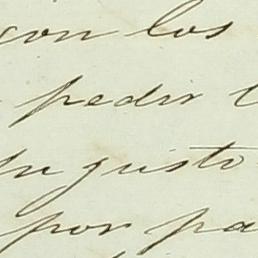 con los
pedir
su gusto
por pa